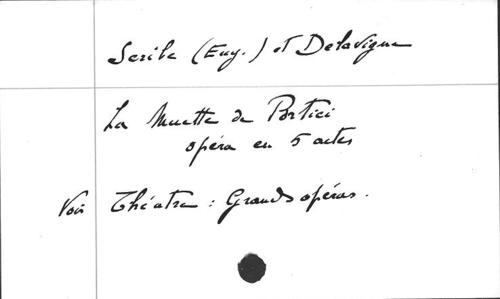 Scribe (Eug.) et Delavigne
La Muette de Portici
opéra en 5 actes
Voir Théatre : Grands opéras.